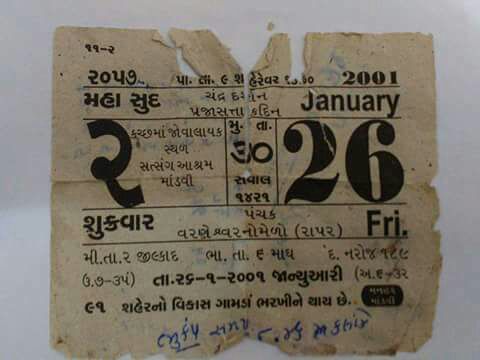 ૧૧-૨
૨૦૫૭ પા. તા. ૯ શહેરેવર ૧૩૭૦ 2001
મહા સુદ ચંદ્ર દર્શન January
પ્રજાસત્તાકદિન
૨ કચ્છમાં જોવાલાયક મુ. તા. 26
સ્થળ ૩૦
સત્સંગ આશ્રમ સવાલ
માંડવી ૧૪૨૧
શુક્રવાર પંચક Fri.
વરણેશ્વરનોમેળો (રાપર)
મી.તા.૨ જીલ્કાદ ભા. તા. ૬ માઘ દ. નરોજ ૧૮૯
(ઉ.૭-૩૫) તા.૨૬-૧-૨૦૦૧ જાન્યુઆરી (અ.૬-૩૨
૯૧ શહેરનો વિકાસ ગામડાં ભરખીને થાય છે. મનહર
માંડવી